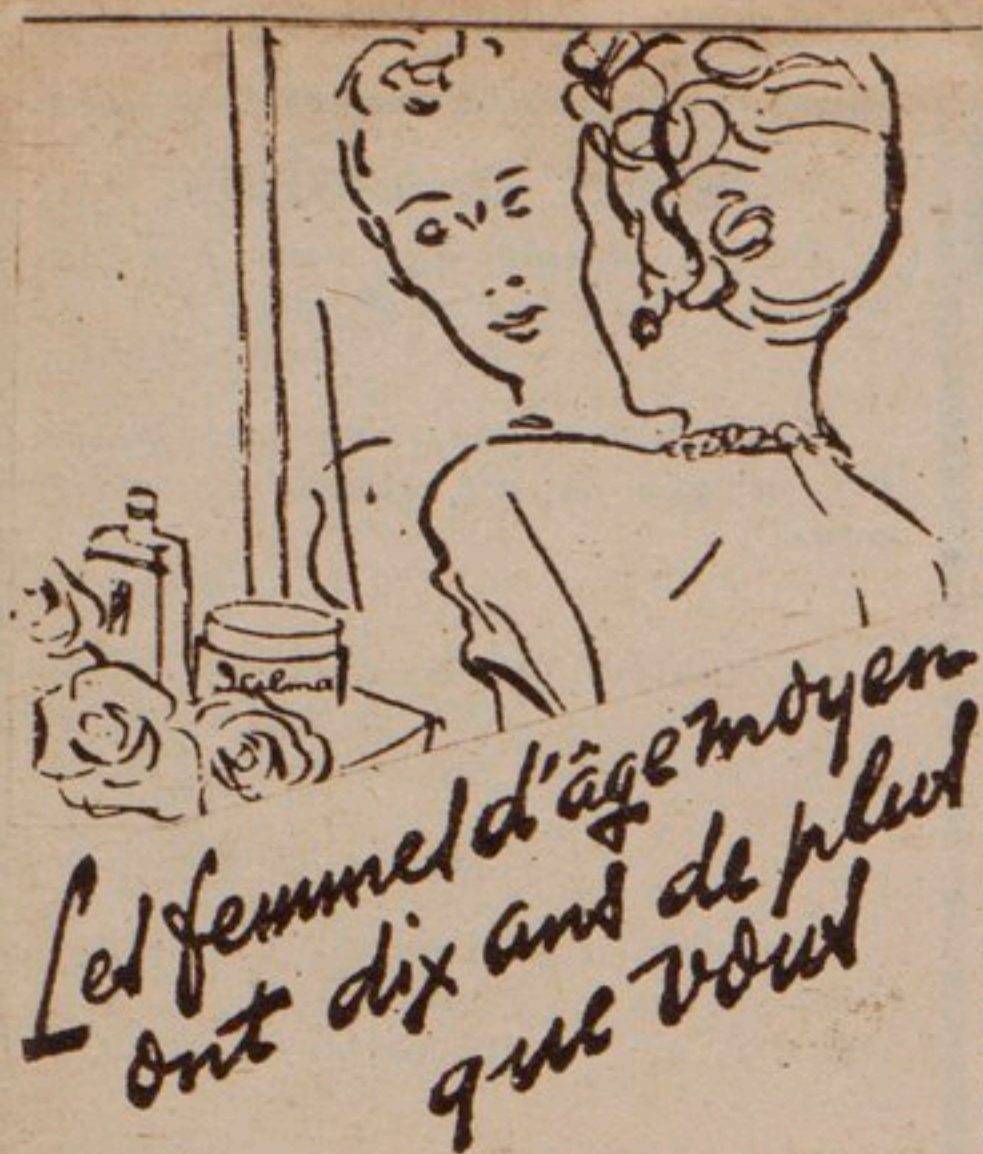 Icilma
Les femmes d'âge moyen
ont dix ans de plus
que vous